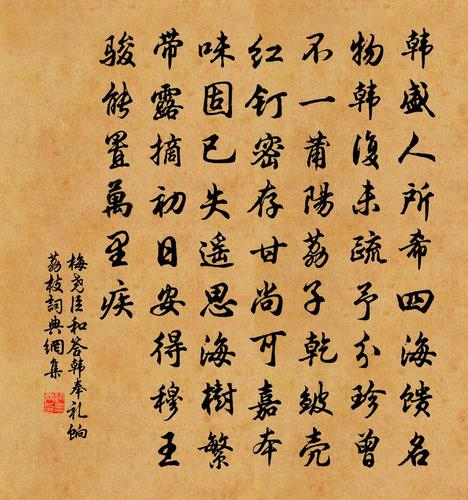 韩盛人所希四海馈名
物韩復未疏予分珍曾
不一莆陽荔子乾皱壳
红钉密存甘尚可嘉本
味固已失遥思海樹繁
带露摘初日安得穆王
骏能置萬里疾
梅尧臣和答韩奉礼饷
荔枝詞典網集